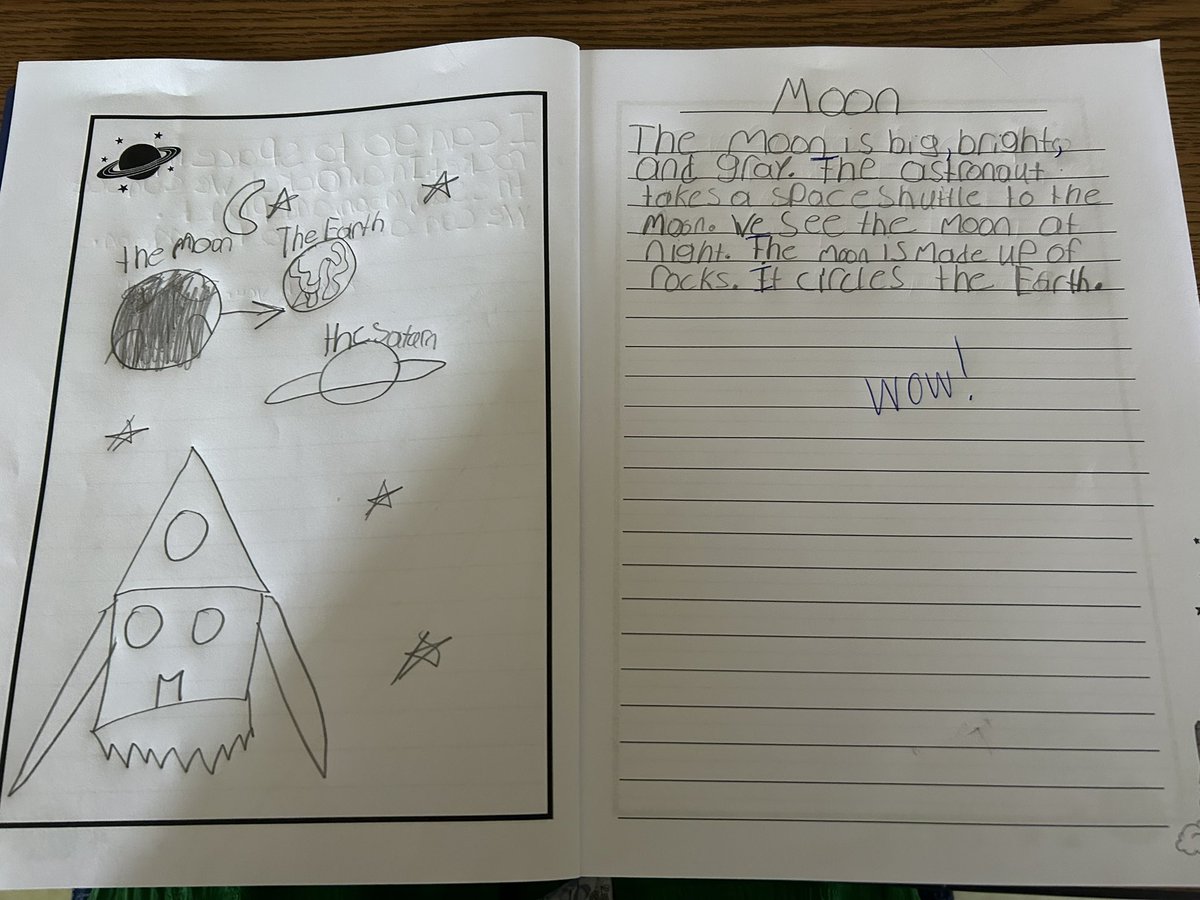 the Moon
The Earth
the Satern
M
Moon
The Moon is big, bright,
and gray. The astronaut
takes a space shuttle to the
Moon. We see the Moon at
night. The moon is made up of
rocks. It circles the Earth.
wow!